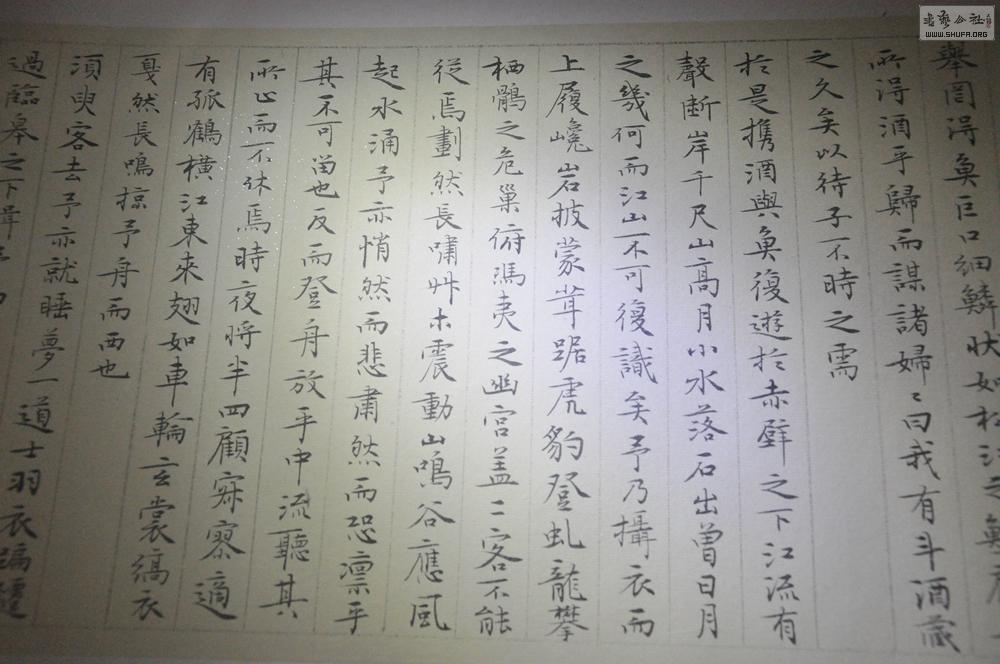 舉罔得魚巨口細鱗狀如松江之鱼
所得酒乎歸而謀諸婦〻曰我有斗酒藏
之久矣以待子不時之需
於是携酒與魚復遊於赤壁之下江流有
聲斷岸千尺山高月小水落石出曾日月
之幾何而江山不可復識矣予乃攝衣而
上履巉岩披蒙茸踞虎豹登虬龍攀
栖鶻之危巢俯馮夷之幽宮盖二客不能
從焉劃然長嘯艸木震動山鳴谷應風
起水涌予亦悄然而悲肅然而恐凛乎
其不可畄也反而登舟放乎中流聽其
所止而不休焉時夜將半四顧寂寥適
有孤鶴橫江東來翅如車輪玄裳縞衣
戛然長鳴掠予舟而西也
須臾客去予亦就睡夢一道士羽衣蹁躚
過臨皋之下
書藝公社
WWW.SHUFA.ORG